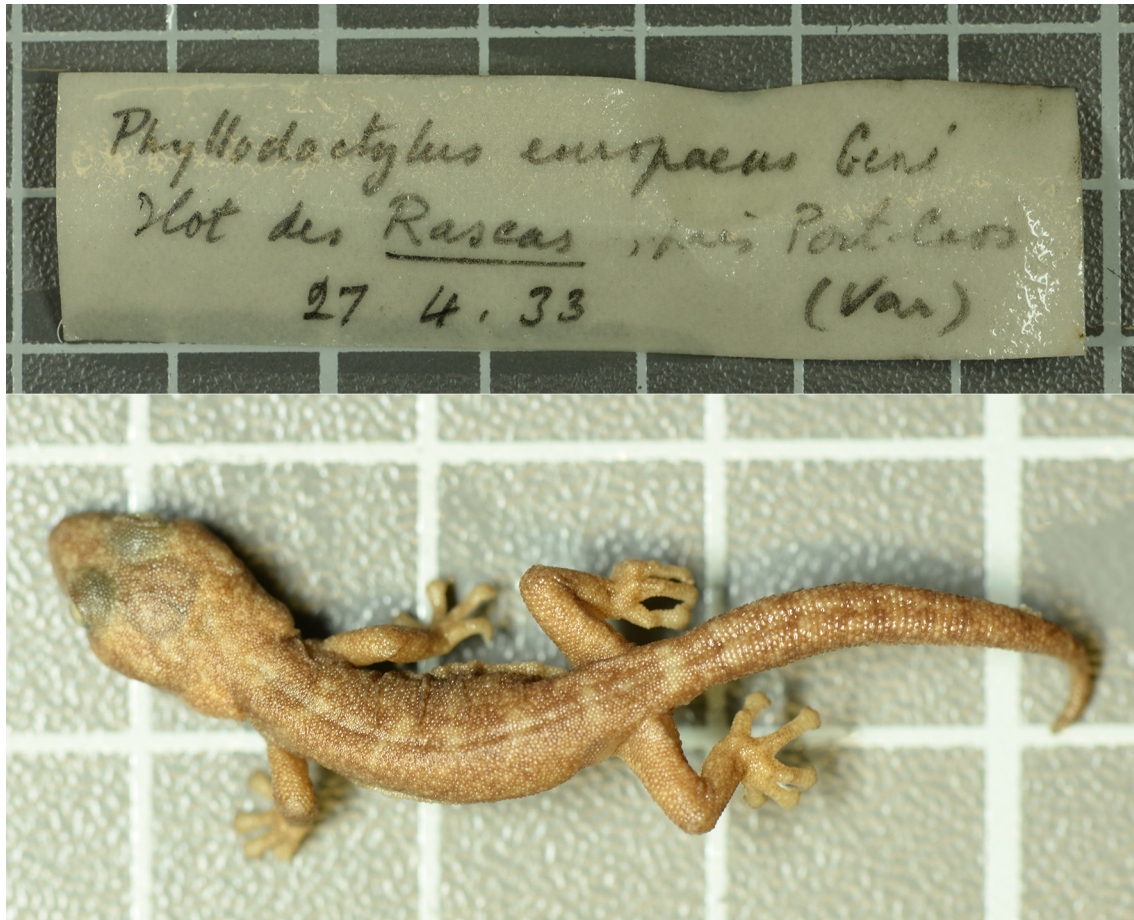 Phyllodactylus europaeus Géné
Ilot des Rascas, près Port-Cros
27. 4. 33 (Var)